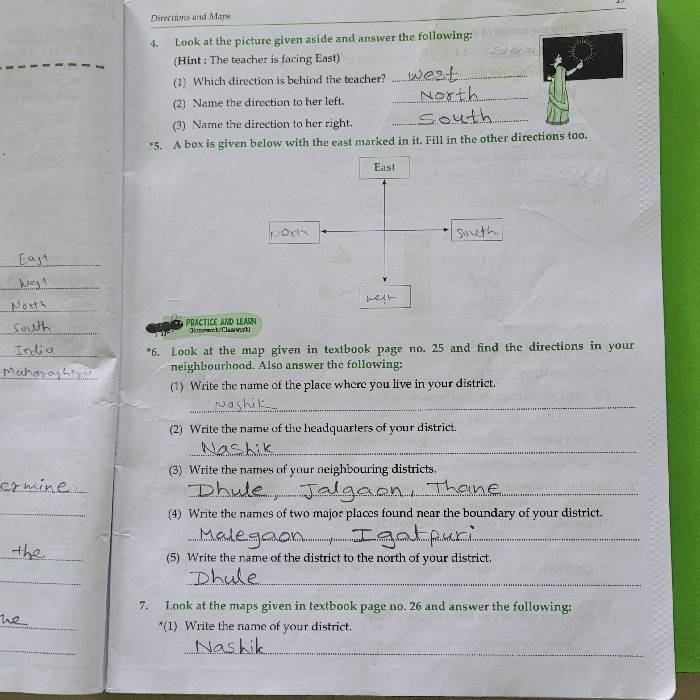 Directions and Maps
4. Look at the picture given aside and answer the following:
(Hint : The teacher is facing East)
(1) Which direction is behind the teacher? West
(2) Name the direction to her left. North
(3) Name the direction to her right. South
*5. A box is given below with the east marked in it. Fill in the other directions too.
East
North
South
West
PRACTICE AND LEARN
(Homework/Classwork)
*6. Look at the map given in textbook page no. 25 and find the directions in your
neighbourhood. Also answer the following:
(1) Write the name of the place where you live in your district.
Nashik
(2) Write the name of the headquarters of your district.
Nashik
(3) Write the names of your neighbouring districts.
Dhule, Jalgaon, Thane
(4) Write the names of two major places found near the boundary of your district.
Malegaon, Igatpuri
(5) Write the name of the district to the north of your district.
Dhule
7. Look at the maps given in textbook page no. 26 and answer the following:
*(1) Write the name of your district.
Nashik
East
West
North
South
India
ermine
the
he